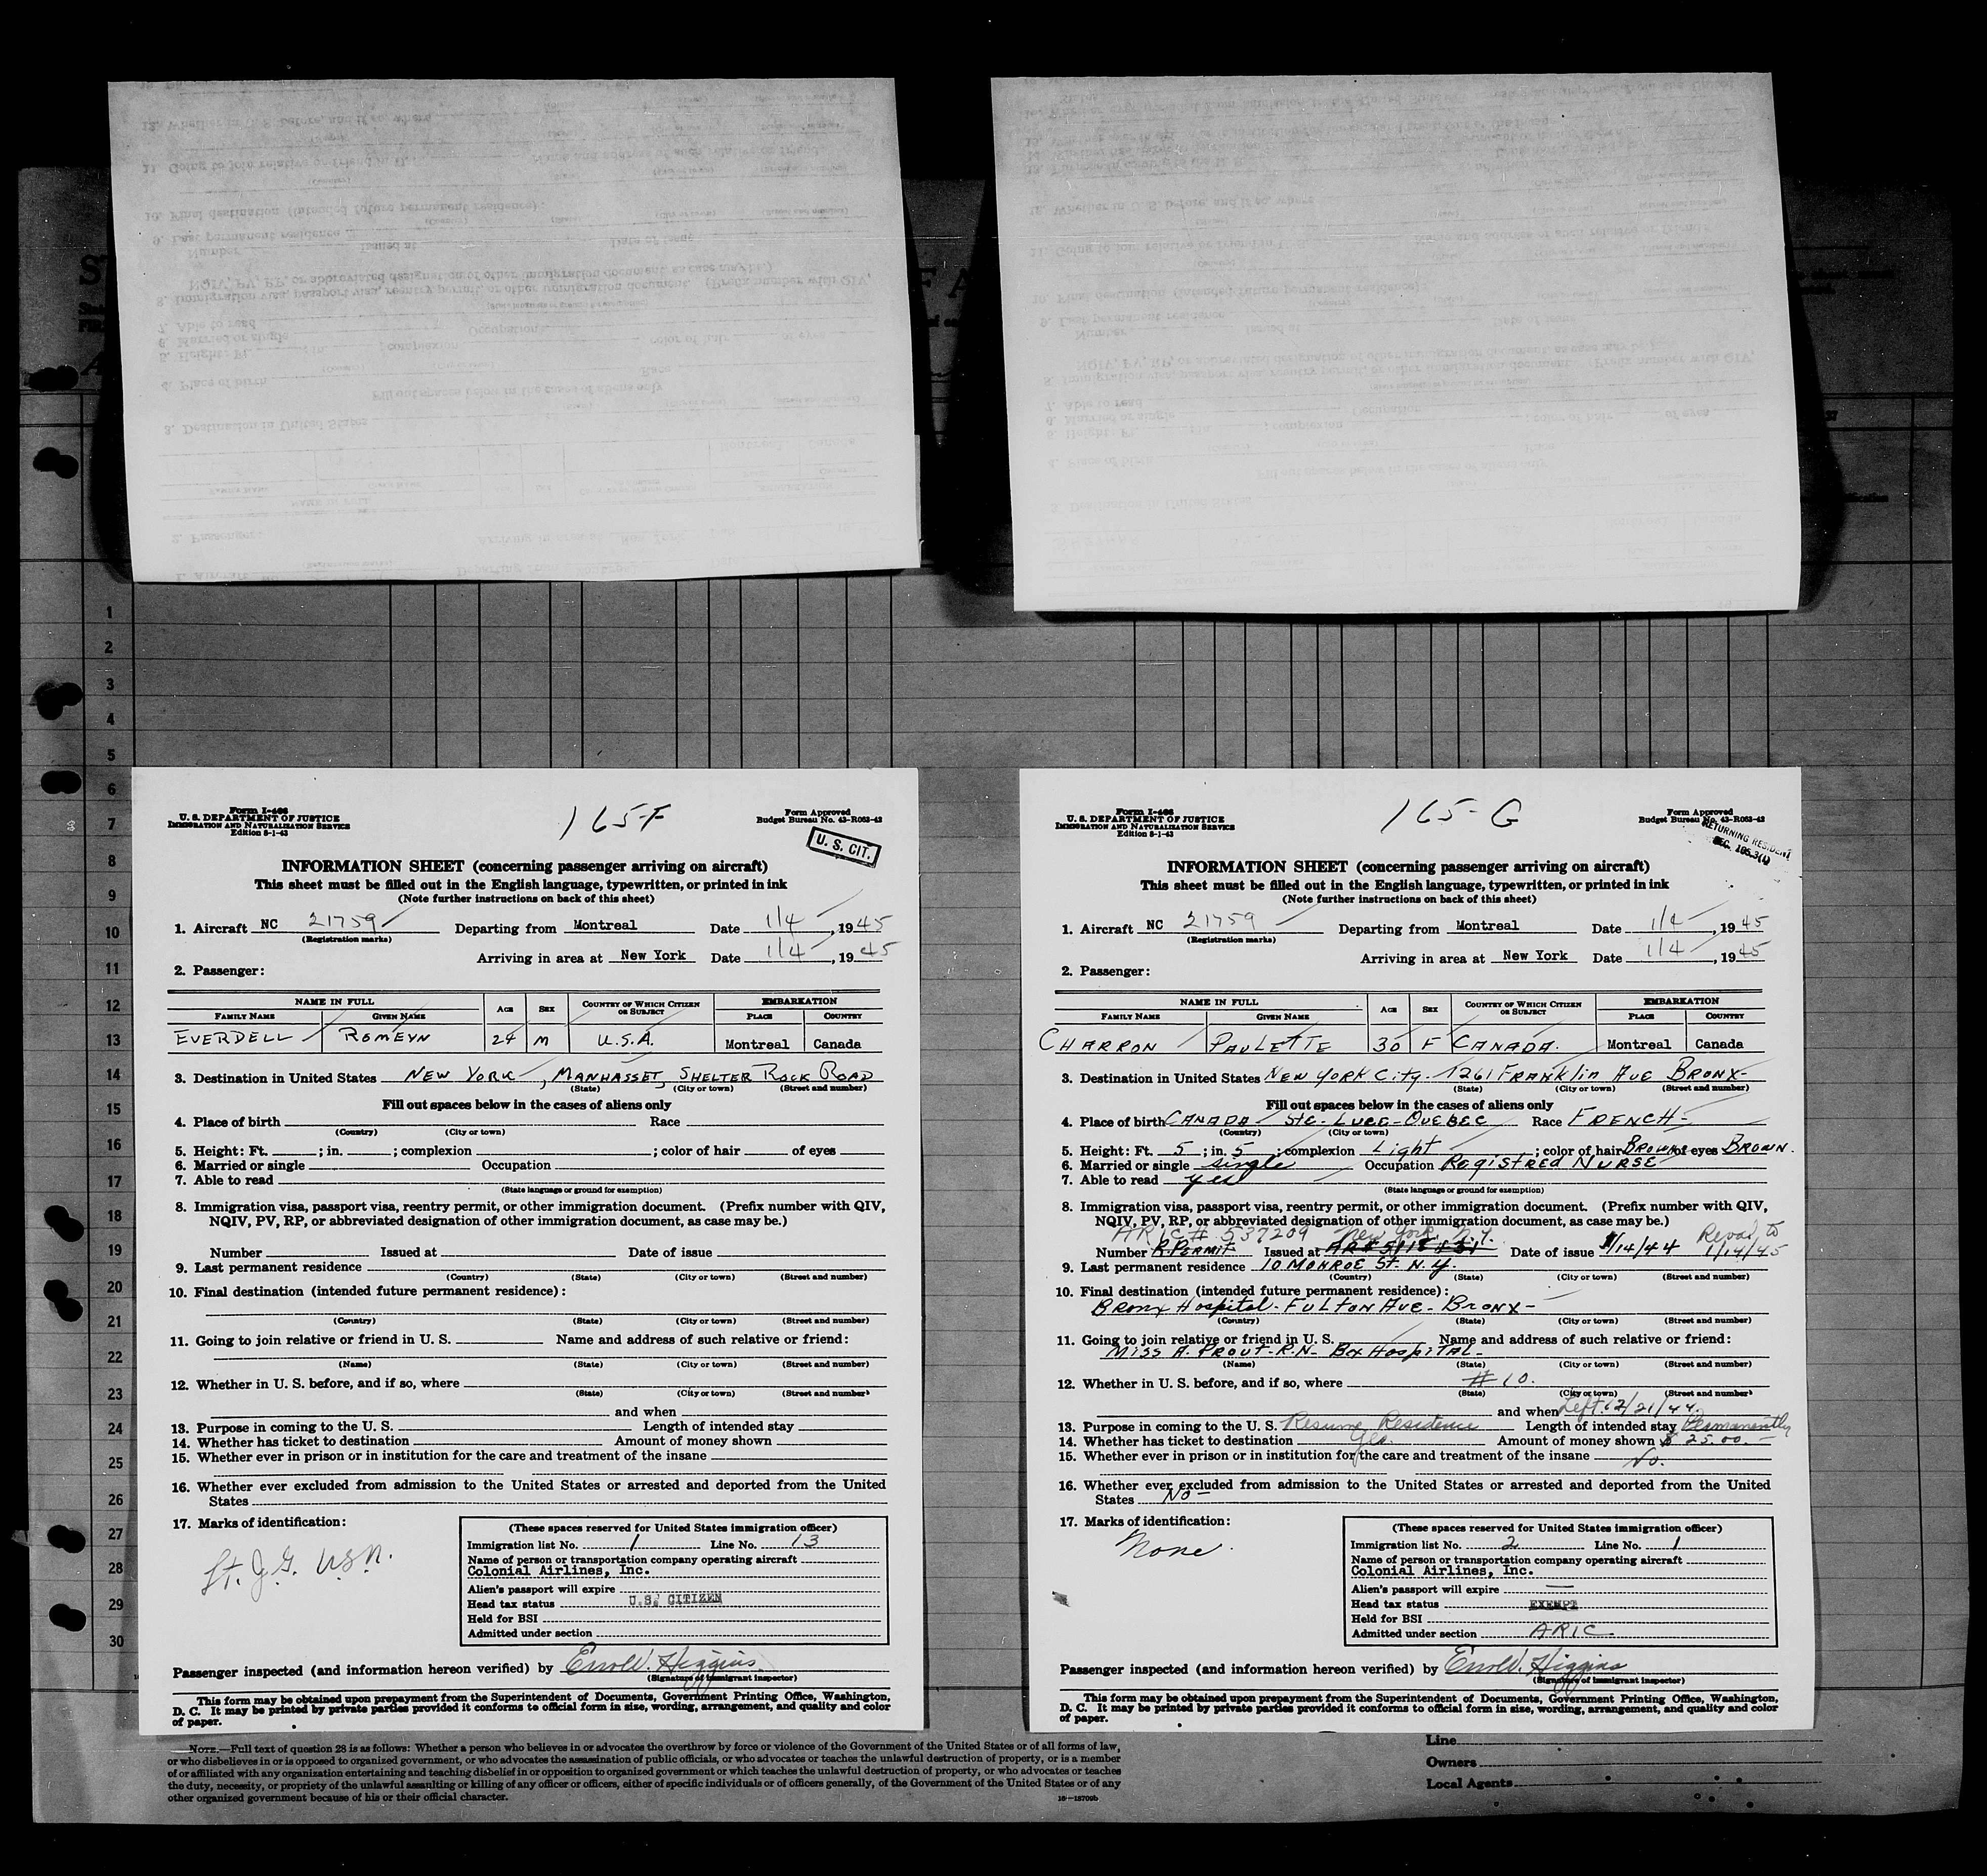 165-F
Form I-466
U. S. DEPARTMENT OF JUSTICE
IMMIGRATION AND NATURALIZATION SERVICE
Edition 8-1-43
Form Approved
Budget Bureau No. 43-R063-42
U. S. CIT.
INFORMATION SHEET (concerning passenger arriving on aircraft)
This sheet must be filled out in the English language, typewritten, or printed in ink
(Note further instructions on back of this sheet)
1. Aircraft NC 21759 Departing from Montreal Date 1/4, 1945
(Registration marks)
Arriving in area at New York Date 1/4, 1945
2. Passenger:
NAME IN FULL AGE SEX COUNTRY OF WHICH CITIZEN OR SUBJECT EMBARKATION
FAMILY NAME GIVEN NAME PLACE COUNTRY
EVERDELL ROMEYN 24 M U.S.A. Montreal Canada
3. Destination in United States NEW YORK, MANHASSET, SHELTER ROCK ROAD
(State) (City or town) (Street and number)
Fill out spaces below in the cases of aliens only
4. Place of birth Race
(Country) (City or town)
5. Height: Ft. ; in. ; complexion ; color of hair of eyes
6. Married or single Occupation
7. Able to read
(State language or ground for exemption)
8. Immigration visa, passport visa, reentry permit, or other immigration document. (Prefix number with QIV,
NQIV, PV, RP, or abbreviated designation of other immigration document, as case may be.)
Number Issued at Date of issue
9. Last permanent residence
(Country) (State) (City or town) (Street and number)
10. Final destination (intended future permanent residence):
(Country) (State) (City or town) (Street and number)
11. Going to join relative or friend in U. S. Name and address of such relative or friend:
(Name) (State) (City or town) (Street and number)
12. Whether in U. S. before, and if so, where
(State) (City or town) (Street and number)
and when
13. Purpose in coming to the U. S. Length of intended stay
14. Whether has ticket to destination Amount of money shown
15. Whether ever in prison or in institution for the care and treatment of the insane
16. Whether ever excluded from admission to the United States or arrested and deported from the United
States
17. Marks of identification:
Lt. J.G. USN.
(These spaces reserved for United States immigration officer)
Immigration list No. 1 Line No. 13
Name of person or transportation company operating aircraft
Colonial Airlines, Inc.
Alien's passport will expire
Head tax status U.S. CITIZEN
Held for BSI
Admitted under section
Passenger inspected (and information hereon verified) by Errol W. Higgins
(Signature of immigrant inspector)
This form may be obtained upon prepayment from the Superintendent of Documents, Government Printing Office, Washington,
D. C. It may be printed by private parties provided it conforms to official form in size, wording, arrangement, and quality and color
of paper.
165-G
Form I-466
U. S. DEPARTMENT OF JUSTICE
IMMIGRATION AND NATURALIZATION SERVICE
Edition 8-1-43
Form Approved
Budget Bureau No. 43-R063-42
RETURNING RESIDENT
SEC. 165.3(1)
INFORMATION SHEET (concerning passenger arriving on aircraft)
This sheet must be filled out in the English language, typewritten, or printed in ink
(Note further instructions on back of this sheet)
1. Aircraft NC 21759 Departing from Montreal Date 1/4, 1945
(Registration marks)
Arriving in area at New York Date 1/4, 1945
2. Passenger:
NAME IN FULL AGE SEX COUNTRY OF WHICH CITIZEN OR SUBJECT EMBARKATION
FAMILY NAME GIVEN NAME PLACE COUNTRY
CHARRON PAULETTE 30 F CANADA. Montreal Canada
3. Destination in United States NEW YORK CITY. 1261 FRANKLIN AVE BRONX-
(State) (City or town) (Street and number)
Fill out spaces below in the cases of aliens only
4. Place of birth CANADA STE-LUCE-QUEBEC Race FRENCH-
(Country) (City or town)
5. Height: Ft. 5; in. 5; complexion Light; color of hair BROWN of eyes BROWN.
6. Married or single single Occupation REGISTRED NURSE
7. Able to read yes
(State language or ground for exemption)
8. Immigration visa, passport visa, reentry permit, or other immigration document. (Prefix number with QIV,
NQIV, PV, RP, or abbreviated designation of other immigration document, as case may be.)
ARIC # 537209 New York, N.Y. to
Number R. PERMIT Issued at Date of issue 1/14/44 1/14/45
9. Last permanent residence 10 MONROE ST. N.Y.
(Country) (State) (City or town) (Street and number)
10. Final destination (intended future permanent residence):
BRONX HOSPITAL-FULTON AVE-BRONX-
(Country) (State) (City or town) (Street and number)
11. Going to join relative or friend in U. S. Name and address of such relative or friend:
MISS A. PROUT-R.N- BX HOSPITAL-
(Name) (State) (City or town) (Street and number)
12. Whether in U. S. before, and if so, where #10.
(State) (City or town) (Street and number)
and when Left 12/21/44.
13. Purpose in coming to the U. S. Resume Residence Length of intended stay Permanently
14. Whether has ticket to destination Yes. Amount of money shown $ 25.00.-
15. Whether ever in prison or in institution for the care and treatment of the insane No.
16. Whether ever excluded from admission to the United States or arrested and deported from the United
States NO-
17. Marks of identification:
None.
(These spaces reserved for United States immigration officer)
Immigration list No. 2 Line No. 1
Name of person or transportation company operating aircraft
Colonial Airlines, Inc.
Alien's passport will expire —
Head tax status EXEMPT
Held for BSI
Admitted under section ARIC
Passenger inspected (and information hereon verified) by Errol W. Higgins
(Signature of immigrant inspector)
This form may be obtained upon prepayment from the Superintendent of Documents, Government Printing Office, Washington,
D. C. It may be printed by private parties provided it conforms to official form in size, wording, arrangement, and quality and color
of paper.
1
2
3
4
5
6
7
8
9
10
11
12
13
14
15
16
17
18
19
20
21
22
23
24
25
26
27
28
29
30
NOTE.—Full text of question 28 is as follows: Whether a person who believes in or advocates the overthrow by force or violence of the Government of the United States or of all forms of law,
or who disbelieves in or is opposed to organized government, or who advocates the assassination of public officials, or who advocates or teaches the unlawful destruction of property, or is a member
of or affiliated with any organization entertaining and teaching disbelief in or opposition to organized government or which teaches the unlawful destruction of property, or who advocates or teaches
the duty, necessity, or propriety of the unlawful assaulting or killing of any officer or officers, either of specific individuals or of officers generally, of the Government of the United States or of any
other organized government because of his or their official character.
16—18709b
Line
Owners
Local Agents